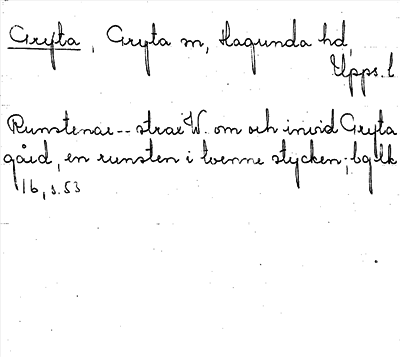 Gryta, Gryta sn, Hagunda hd,
Upps. l
Runstenar -- strax W. om och invid Gryta
gård, en runsten i tvenne stycken; bqlk
16, s. 53